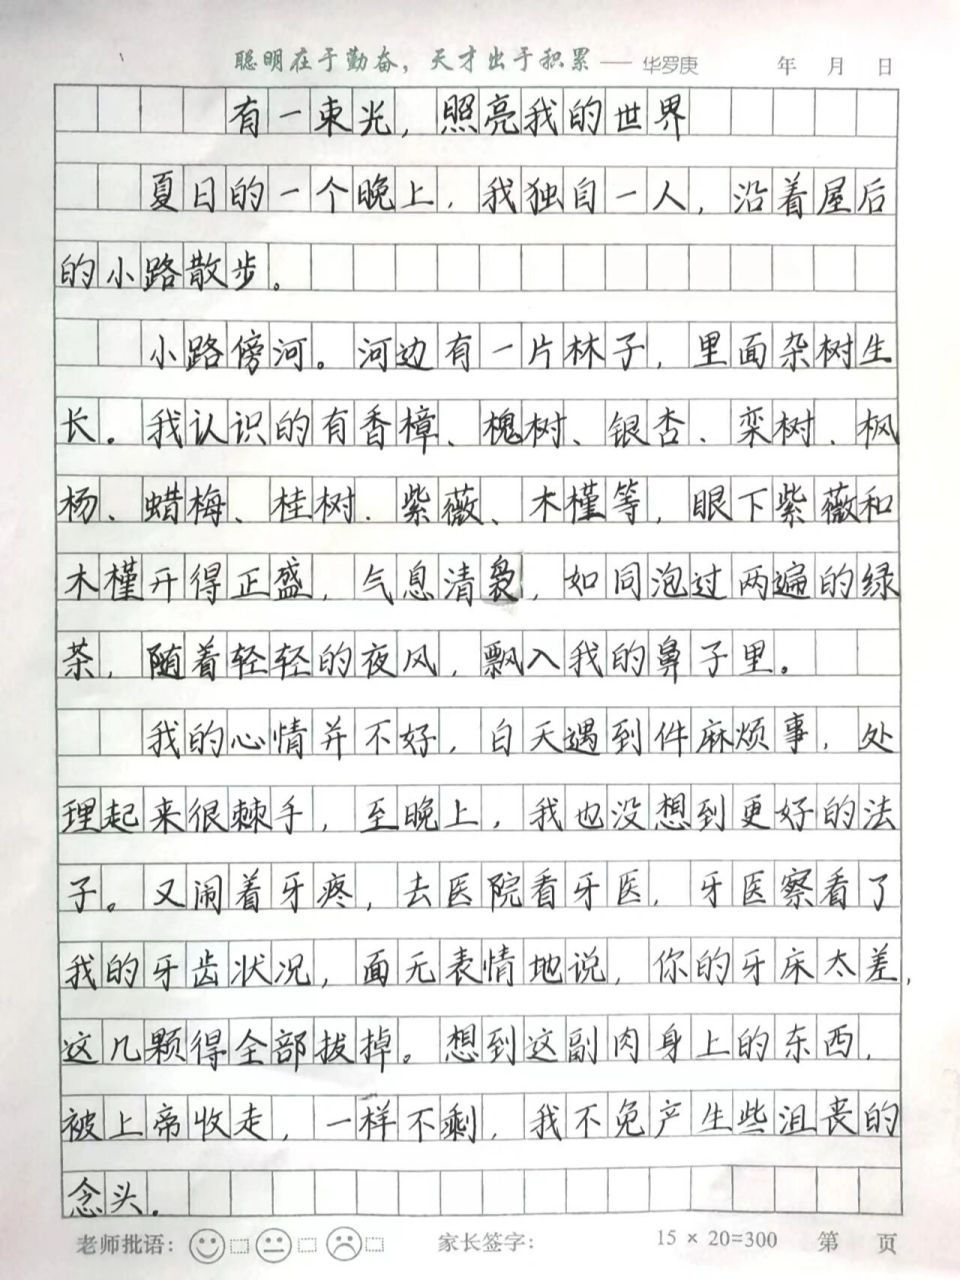 聪明在于勤奋，天才出于积累——华罗庚 年 月 日
有一束光，照亮我的世界
夏日的一个晚上，我独自一人，沿着屋后
的小路散步。
小路傍河。河边有一片林子，里面杂树生
长。我认识的有香樟、槐树、银杏、栾树、枫
杨、蜡梅、桂树、紫薇、木槿等，眼下紫薇和
木槿开得正盛，气息清袅，如同泡过两遍的绿
茶，随着轻轻的夜风，飘入我的鼻子里。
我的心情并不好，白天遇到件麻烦事，处
理起来很棘手，至晚上，我也没想到更好的法
子。又闹着牙疼，去医院看牙医，牙医察看了
我的牙齿状况，面无表情地说，你的牙床太差，
这几颗得全部拔掉。想到这副肉身上的东西，
被上帝收走，一样不剩，我不免产生些沮丧的
念头。
老师批语： 家长签字： 15 × 20=300 第 页